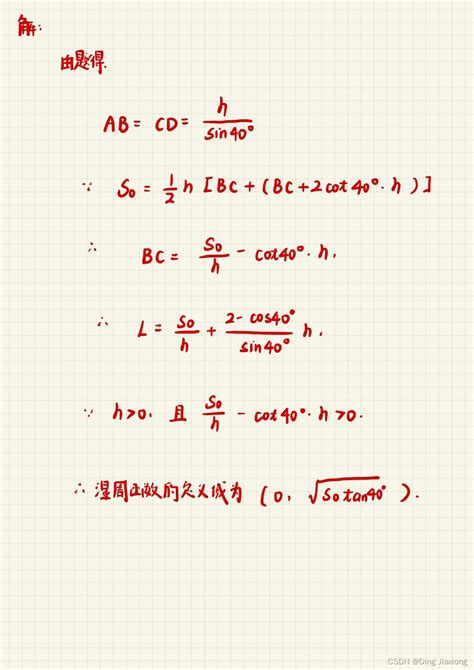 解:
由题得
AB = CD = h/sin40°
∵ S₀ = 1/2 h [BC + (BC + 2cot40°·h)]
∴ BC = S₀/h - cot40°·h,
∴ L = S₀/h + (2-cos40°)/sin40° h.
∵ h>0, 且 S₀/h - cot40°·h>0.
∴ 湿周函数的定义域为 (0, √(S₀tan40°)).
CSDN @Ding Jiaxiong